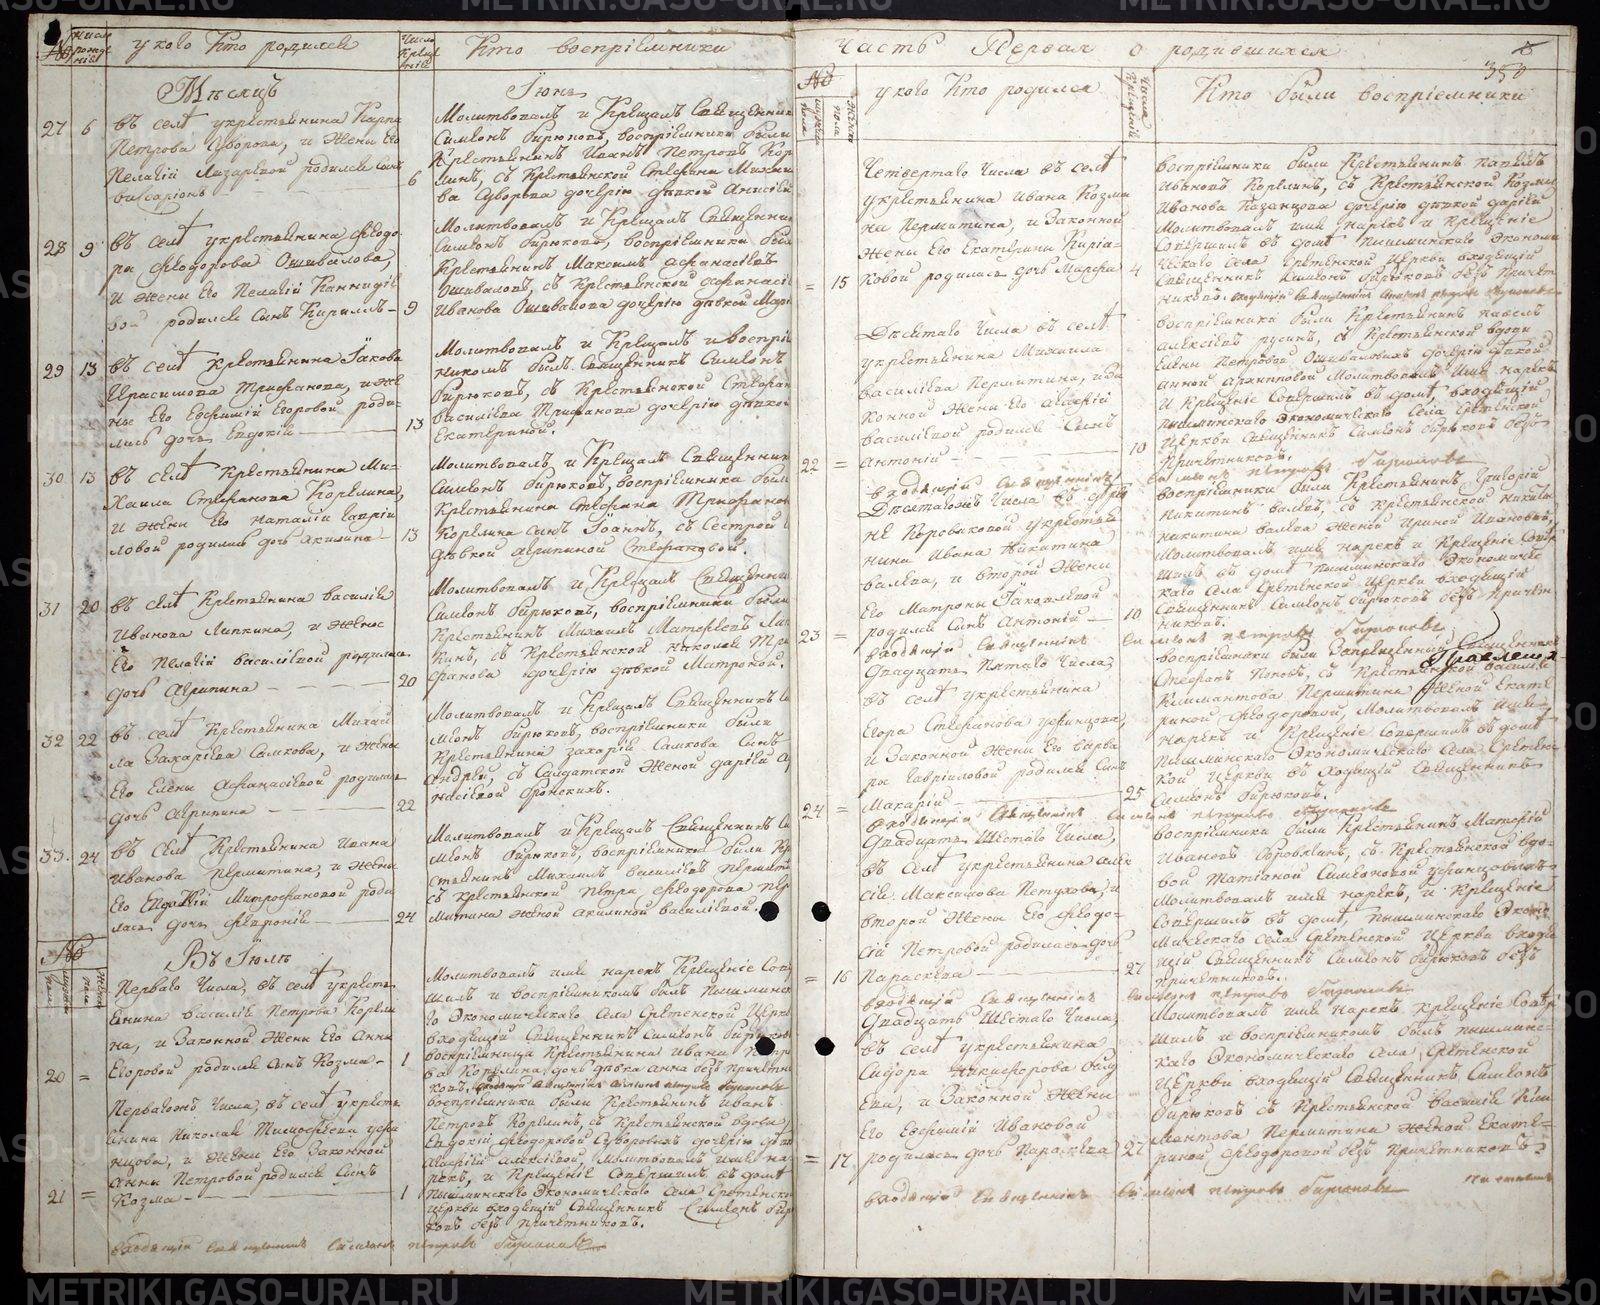 у кого кто родился
Кто восприемники
Месяцъ
Iюнь
27 6 въ селѣ укрестьянина Карпа
Петрова Суворова, и жены Его
Пелагiи Лазаревой родился сынъ
висарiонъ
6
Молитвовалъ и Крещалъ Священник
Симеонъ Бирюковъ, восприемники были
Крестьянинъ Иванъ Петровъ Кор
линъ, съ Крестьянской Стефана Михаи
ва Суворова дочерiю дѣвкой Анисiей
28 9 въ селѣ укрестьянина Феодо
ра Феодорова Ошивалова,
И жены Его Пелагiи
родился сынъ Кириллъ
9
Молитвовалъ и Крещалъ Священни
Симеонъ Бирюковъ, восприемники был
Крестьянинъ Максимъ Афанасiевъ
Ошиваловъ, съ Крестьянской Афанасi
Иванова Ошивалова дочерiю дѣвкой Марi
29 13 въ селѣ Крестьянина Iакова
Герасимова Трифанова, и же
ны Его Евфимiи Егоровой роди-
лась дочь Евдокiя
13
Молитвовалъ и Крещалъ и воспрiе
никомъ былъ Священникъ Симеонъ
Бирюковъ, съ Крестьянской Стефан
Василiева Трифанова дочерiю дѣвкой
Екатериной.
30 13 въ селѣ Крестьянина Ми-
хаила Стефанова Корелина,
И жены Его Наталiи Гаврiи
ловой родилась дочь Акилина
13
Молитвовалъ и Крещалъ Священник
Симеонъ Бирюковъ, восприемники были
Крестьянина Стефана Трифанов
Корелина сынъ Iоаннъ, съ Сестрой
дѣвкой Агрипиной Стефановой.
31 20 въ селѣ Крестьянина Василiя
Иванова Липкина, и жены
Его Пелагiи Василiевой родилась
дочь Агрипина
20
Молитвовалъ и Крещалъ Священни
Симеонъ Бирюковъ, восприемники были
Крестьянинъ Михаилъ Матфеевъ Лип
кинъ, съ Крестьянской Николая Три
фанова дочерiю дѣвкой Матроной.
32 22 въ селѣ Крестьянина Михаи
ла Захарiева Самкова, и жены
Его Елены Афанасiевой родилась
дочь Агрипина
22
Молитвовалъ и Крещалъ Священникъ Си
меонъ Бирюковъ, восприемники были
Крестьянина Захарiя Самкова сынъ
Андрей, съ Салдатской женой Дарiей А
насiевой
33 24 въ селѣ Крестьянина Ивана
Иванова Пермитина, и жены
Его Евдокiи Митрофановой роди
лась дочь Феврониiя
24
Молитвовалъ и Крещалъ Священникъ Си
меонъ Бирюковъ, восприемники были Кр
стьянинъ Михаилъ Василiевъ Пермит
съ Крестьянской Петра Феодорова Пер
митина женой Акилиной Василiевой.
Въ Iюлѣ
Перваго Числа, въ селѣ укресть
янина Василiя Петрова Корели
на, и Законной жены Его Анны
Егоровой родился сынъ Козма
20 = 1
Молитвовалъ имя нарекъ Крещенiе Сов
шилъ и восприемникомъ былъ Пышминска
го Экономическаго села Срѣтенской Церкви
входящiй Священникъ Симеонъ Бирюков
восприемница Крестьянина Ивана Петр
ва Корелина дочь дѣвка Анна безъ причетни
ковъ. входящiй священникъ Симеонъ Петровъ Бирюковъ
Перваго Числа, въ селѣ укресть
янина Николая Тимофеева Уфи
нцова, и жены Его Законной
Анны Петровой родился сынъ
21 = Козма 1
восприемники были Крестьянинъ Иванъ
Петровъ Корелинъ, съ Крестьянской вдовы
Евдокiи Феодоровой Суворовыхъ дочерiю дѣв
Агафiей Алексiевой Молитвовалъ имя на
рекъ, и Крещенiе Совершилъ въ домѣ
Пышминскаго Экономическаго Села Срѣтенско
Церкви входящiй Священникъ Симеонъ Бир
ковъ безъ причетниковъ.
входящiй священникъ Симеонъ Петровъ Бирюковъ
Часть Первая о родившихся
350
у кого кто родился
Кто были восприемники
Четвертаго Числа въ селѣ
укрестьянина Ивана Козми
на Пермитина, и Законной
жены Его Екатерины Кирiа-
ковой родилась дочь Марфа
= 15 4
восприемники были Крестьянинъ Павелъ
Ивановъ Корелинъ, съ Крестьянской Козмы
Иванова Казанцова дочерiю дѣвкой Дарiей
Молитвовалъ имя нарекъ и Крещенiе
Совершилъ въ домѣ Пышминскаго Экономи
ческаго Села Срѣтенской Церкви входящiй
Священникъ Симеонъ Бирюковъ безъ Причет
никовъ. входящiй священникъ Симеонъ Петровъ Бирюковъ
Десятаго Числа въ селѣ
укрестьянина Михаила
Василiева Пермитина, и За
конной жены Его Агафiи
Василiевой родился сынъ
22 = Антонiй 10
восприемники были Крестьянинъ Павелъ
Алексiевъ Гусинъ, съ Крестьянской вдовы
Елены Петровой Ошиваловыхъ дочерiю дѣвкой
Анной Архиповой Молитвовалъ имя нарекъ
И Крещенiе Совершилъ въ домѣ, входящiй
Пышминскаго Экономическаго Села Срѣтенской
Церкви Священникъ Симеонъ Бирюковъ безъ
Причетниковъ.
входящiй священникъ Симеонъ Петровъ Бирюковъ
Десятагожъ Числа въ дерев
нѣ Коровяковой укрестья
нина Ивана Никитина
Валова, и второй жены
Его Матроны Iаковлевой
23 = родился сынъ Антонiй 10
восприемники были Крестьянинъ Григорiй
Никитинъ Валовъ, съ Крестьянской Никиты
Никитина Валова женой Ириной Ивановой,
Молитвовалъ имя нарекъ и Крещенiе Совер
шилъ въ домѣ Пышминскаго Экономичес
каго Села Срѣтенской Церкви входящiй
Священникъ Симеонъ Бирюковъ безъ Причет
никовъ.
входящiй священникъ Симеонъ Петровъ Бирюковъ
Двадцать Пятаго Числа,
въ селѣ укрестьянина
Егора Стефанова Уфинцова,
и Законной жены Его Варва
ры Гаврiиловой родился сынъ
24 = Макарiй 25
восприемники были Запрещенный Священникъ
Стефанъ Поповъ, съ Крестьянской Василiя
Климантова Пермитина женой Екате
риной Феодоровой, Молитвовалъ имя
нарекъ и Крещенiе Совершилъ въ домѣ
Пышминскаго Экономическаго Села Срѣтенс
кой Церкви входящiй Священникъ
Симеонъ Бирюковъ.
входящiй священникъ Симеонъ Петровъ Бирюковъ
Двадцать Шестаго Числа,
въ селѣ укрестьянина Алек
сiя Максимова Петухова, и
второй жены Его Феодо-
сiи Петровой родилась дочь
= 16 Параскева 27
восприемники были Крестьянинъ Матфей
Ивановъ Боровлянъ, съ Крестьянской вдо-
вой Татiаной Симеоновой Уфинцовыхъ
Молитвовалъ имя нарекъ, и Крещенiе
Совершилъ въ домѣ, Пышминскаго Эконо
мическаго села Срѣтенской Церкви входя
щiй Священникъ Симеонъ Бирюковъ безъ
причетниковъ.
входящiй священникъ Симеонъ Петровъ Бирюковъ
Двадцать Шестаго Числа,
въ селѣ укрестьянина
Сидора Никифорова
и Законной жены
Его Евфимiи Ивановой
= 17 родилась дочь Параскева 27
Молитвовалъ имя нарекъ Крещенiе Совер
шилъ и восприемникомъ былъ Пышминс-
каго Экономическаго Села Срѣтенской
Церкви входящiй Священникъ Симеонъ
Бирюковъ съ Крестьянской Василiя Кли
мантова Пермитина женой Екате-
риной Феодоровой безъ Причетниковъ
входящiй священникъ Симеонъ Петровъ Бирюковъ
METRIKI.GASO-URAL.RU